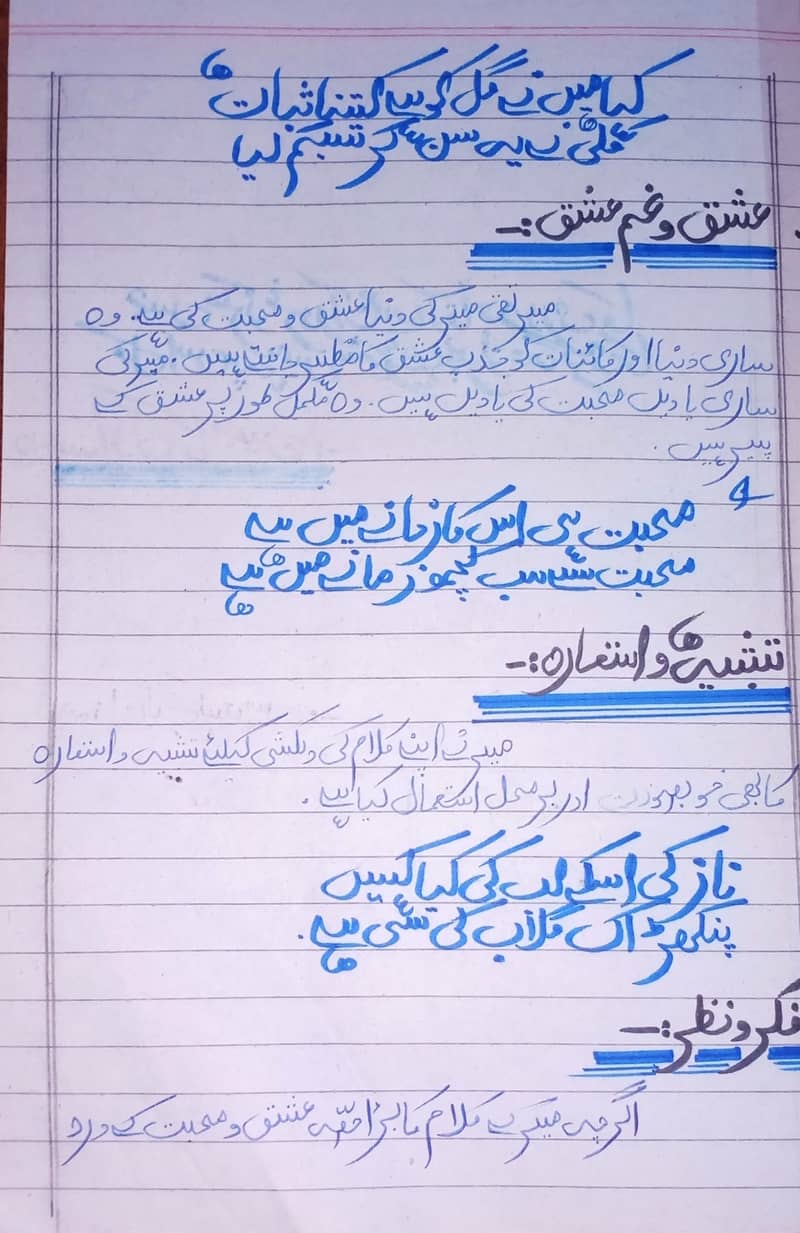 کہا میں نے گل کو ہے کتنا ثبات
کلی نے یہ سن کر تبسم کیا
عشق و غم عشق:-
میر تقی میر کی دنیا عشق و محبت کی ہے. وہ
ساری دنیا اور کائنات کو جذب عشق کا مظہر جانتے ہیں. میر کی
ساری یادیں محبت کی یادیں ہیں. وہ مکمل طور پر عشق کے
پیر ہیں.
محبت ہی اس کارخانے میں ہے
محبت سے سب کچھ زمانے میں ہے
تشبیہ و استعارہ:-
میر نے اپنے کلام کی دلکشی کیلئے تشبیہ و استعارہ
کا بھی خوبصورت اور برمحل استعمال کیا ہے.
نازکی اسکے لب کی کیا کہیں
پنکھڑ اک گلاب کی سی ہے.
فکر و نظر:-
اگرچہ میر کے کلام کا بڑا حصہ عشق و محبت کے درد